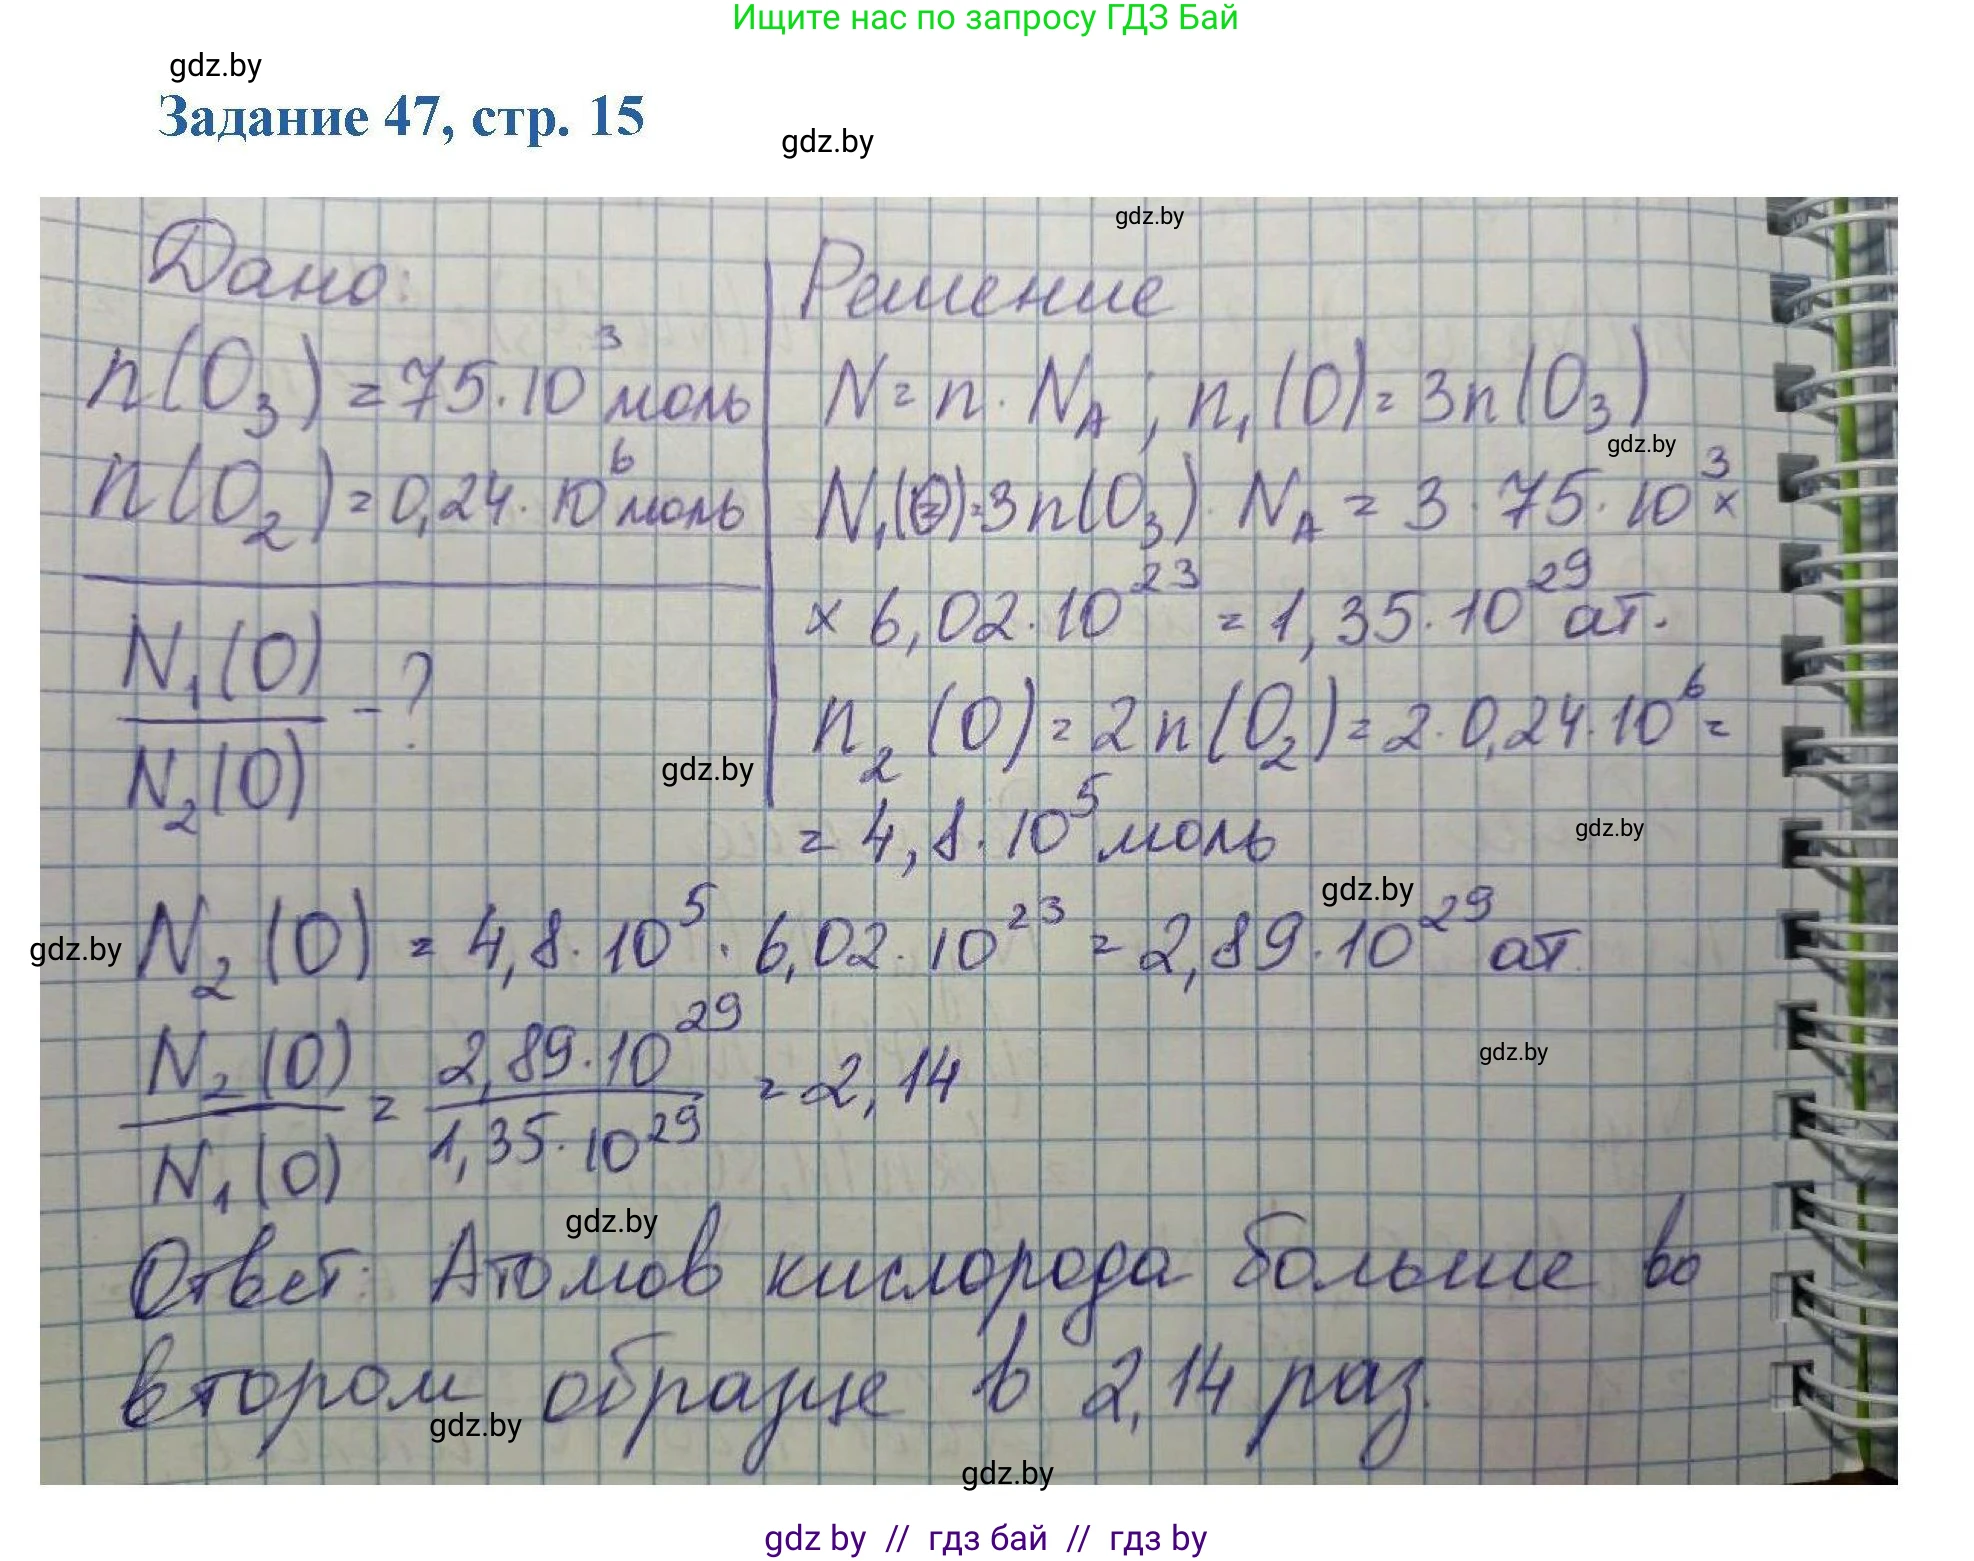 Ищите нас по запросу ГДЗ Бай
gdz.by
Задание 47, стр. 15
gdz.by
gdz.by
Дано:
n(O₃) = 75·10³ моль
n(O₂) = 0,24·10⁶ моль
N₁(O)
N₂(O)
- ?
Решение
N = n·N_A; n₁(O) = 3n(O₃)
gdz.by
N₁(O) = 3n(O₃)·N_A = 3·75·10³ ×
× 6,02·10²³ = 1,35·10²⁹ ат.
n₂(O) = 2n(O₂) = 2·0,24·10⁶ =
gdz.by
= 4,8·10⁵ моль
gdz.by
gdz.by
gdz.by
N₂(O) = 4,8·10⁵·6,02·10²³ = 2,89·10²⁹ ат.
N₂(O) / N₁(O) = 2,89·10²⁹ / 1,35·10²⁹ = 2,14
gdz.by
gdz.by
Ответ: Атомов кислорода больше во
втором образце в 2,14 раз.
gdz.by
gdz.by
gdz by // гдз бай // гдз by